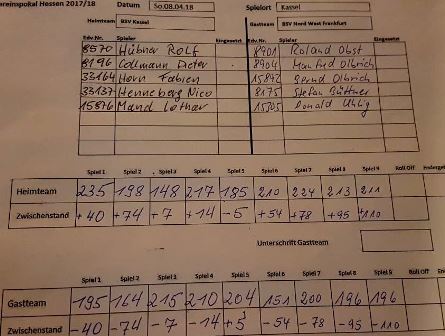 ereinspokal Hessen 2017/18 Datum So.08.04.18 Spielort Kassel
Heimteam BSV Kassel Gastteam BSV Nord West Frankfurt
Edv.Nr. Spieler Eingesetzt Edv.Nr. Spieler Eingesetzt
8570 Hübner Rolf 8901 Roland Obst
8196 Collmann Dieter 8904 Manfred Olbrich
33164 Horn Fabien 15892 Bernd Olbrich
33137 Henneberg Nico 8175 Stefan Büttner
15876 Mand Lothar 15905 Donald Uhlig
Spiel 1 Spiel 2 Spiel 3 Spiel 4 Spiel 5 Spiel 6 Spiel 7 Spiel 8 Spiel 9 Roll Off
Heimteam 235 198 148 217 185 210 224 213 211
Zwischenstand +40 +74 +7 +14 -5 +54 +78 +95 +110
Unterschrift Gastteam
Spiel 1 Spiel 2 Spiel 3 Spiel 4 Spiel 5 Spiel 6 Spiel 7 Spiel 8 Spiel 9 Roll Off
Gastteam 195 164 215 210 204 151 200 196 196
Zwischenstand -40 -74 -7 -14 +5 -54 -78 -95 -110